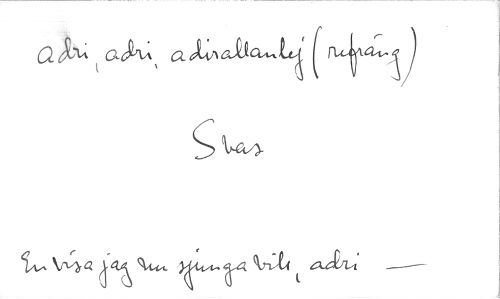 adri, adri, adirallanlej (refräng)
Svas
En visa jag nu sjunga vill, adri —